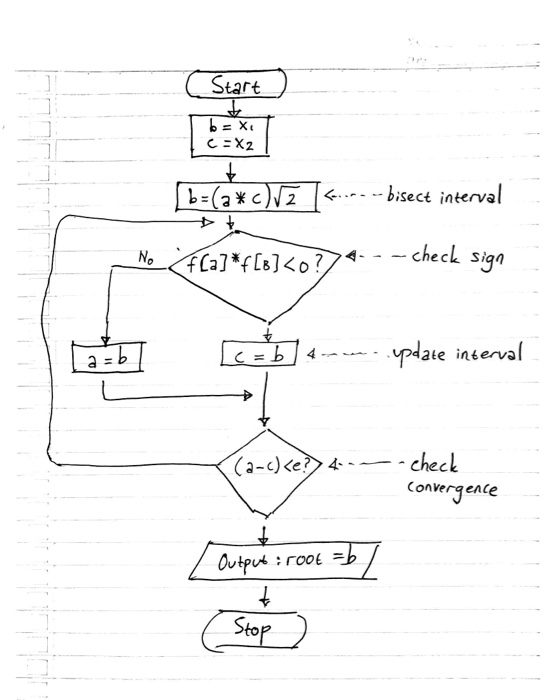 Start
b = x₁
c = x₂
b = (a * c)√2
bisect interval
f[a]*f[B]<0?
check sign
No
a = b
c = b
update interval
(a-c)<e?
check
convergence
Output : root = b
Stop